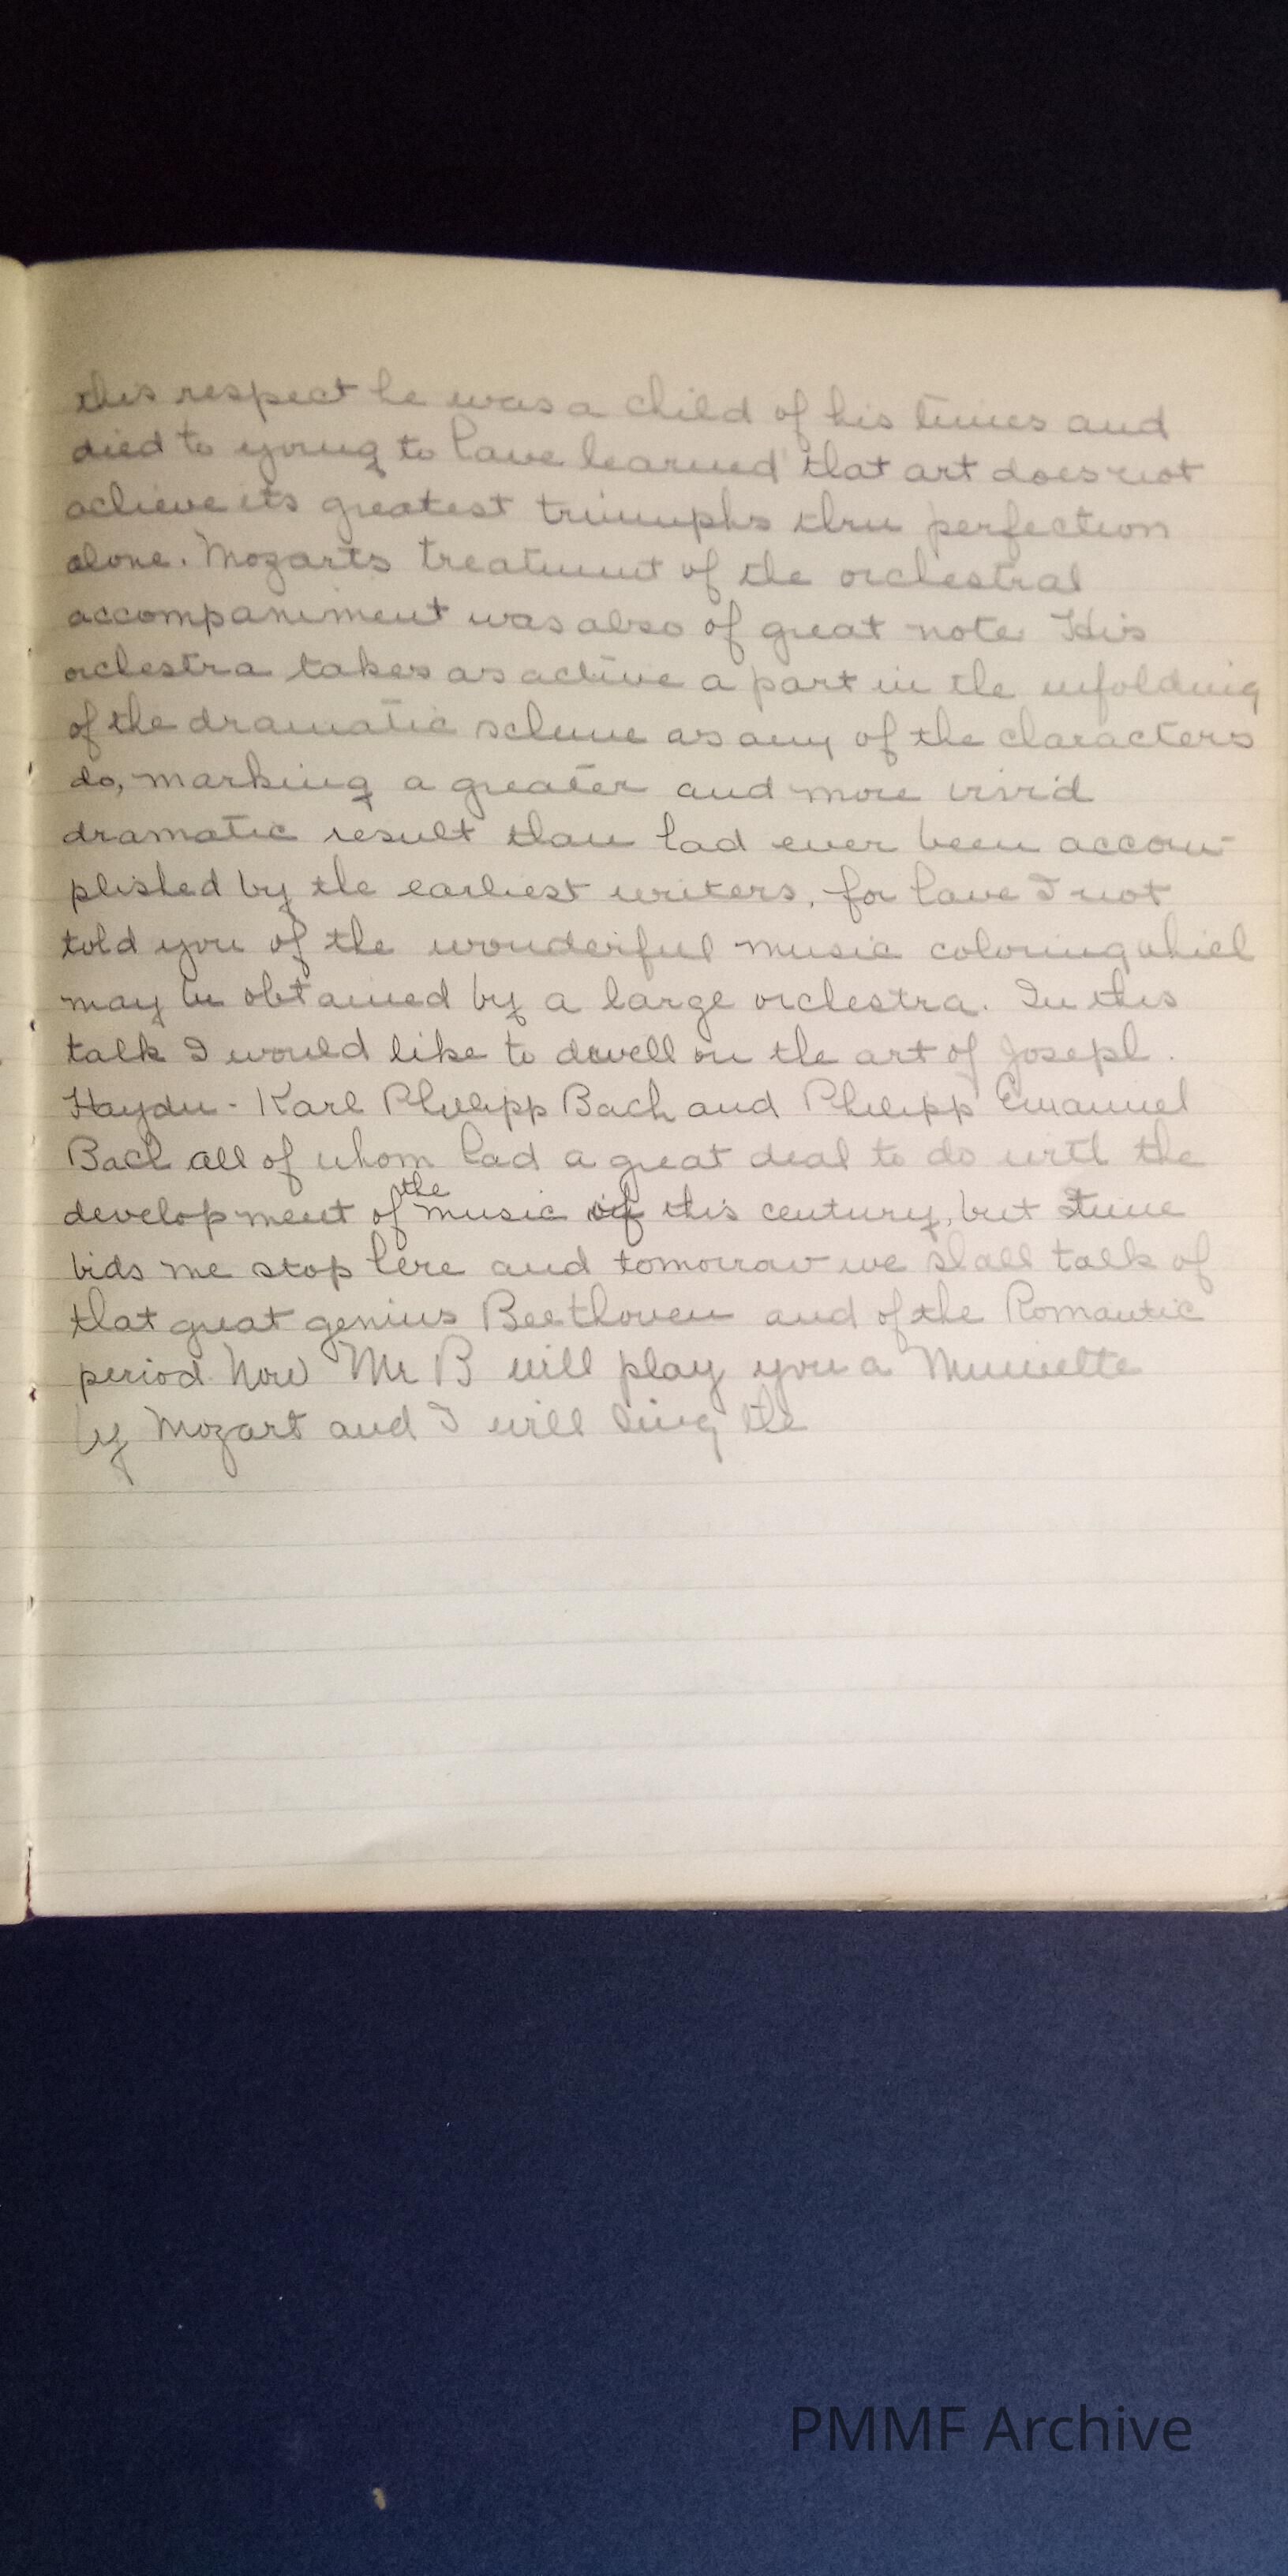 this respect he was a child of his times and
died to young to have learned that art does not
achieve its greatest triumphs thru perfection
alone. Mozarts treatment of the orchestral
accompaniment was also of great note His
orchestra takes as active a part in the unfolding
of the dramatic scheme as any of the characters
do, marking a greater and more vivid
dramatic result than had ever been accom-
plished by the earliest writers, for have I not
told you of the wonderful music coloring which
may be obtained by a large orchestra. In this
talk I would like to dwell on the art of Joseph
Haydn - Karl Philipp Bach and Philipp Emanuel
Bach all of whom had a great deal to do with the
development of the music of this century, but time
bids me stop here and tomorrow we shall talk of
that great genius Beethoven and of the Romantic
period. Now Mr B will play you a Minuette
by Mozart and I will sing the
PMMF Archive